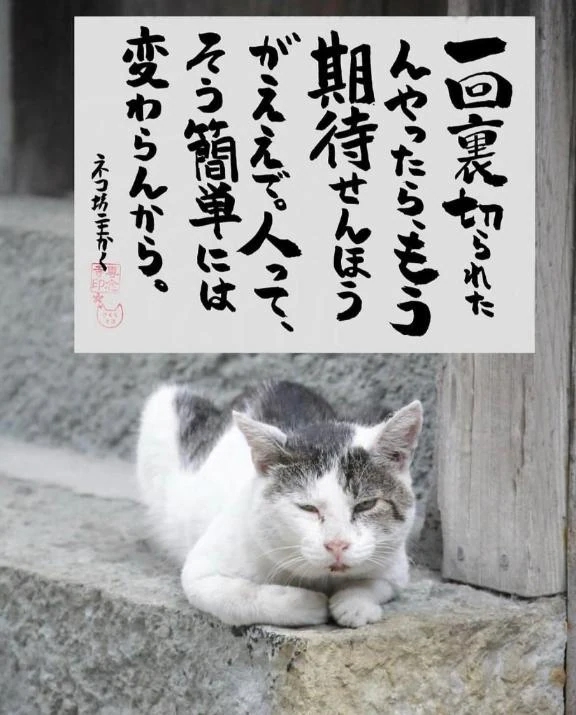 一回裏切られた
んやったら、もう
期待せんほう
がええで。人って、
そう簡単には
変わらんから。
ネコ坊主かく